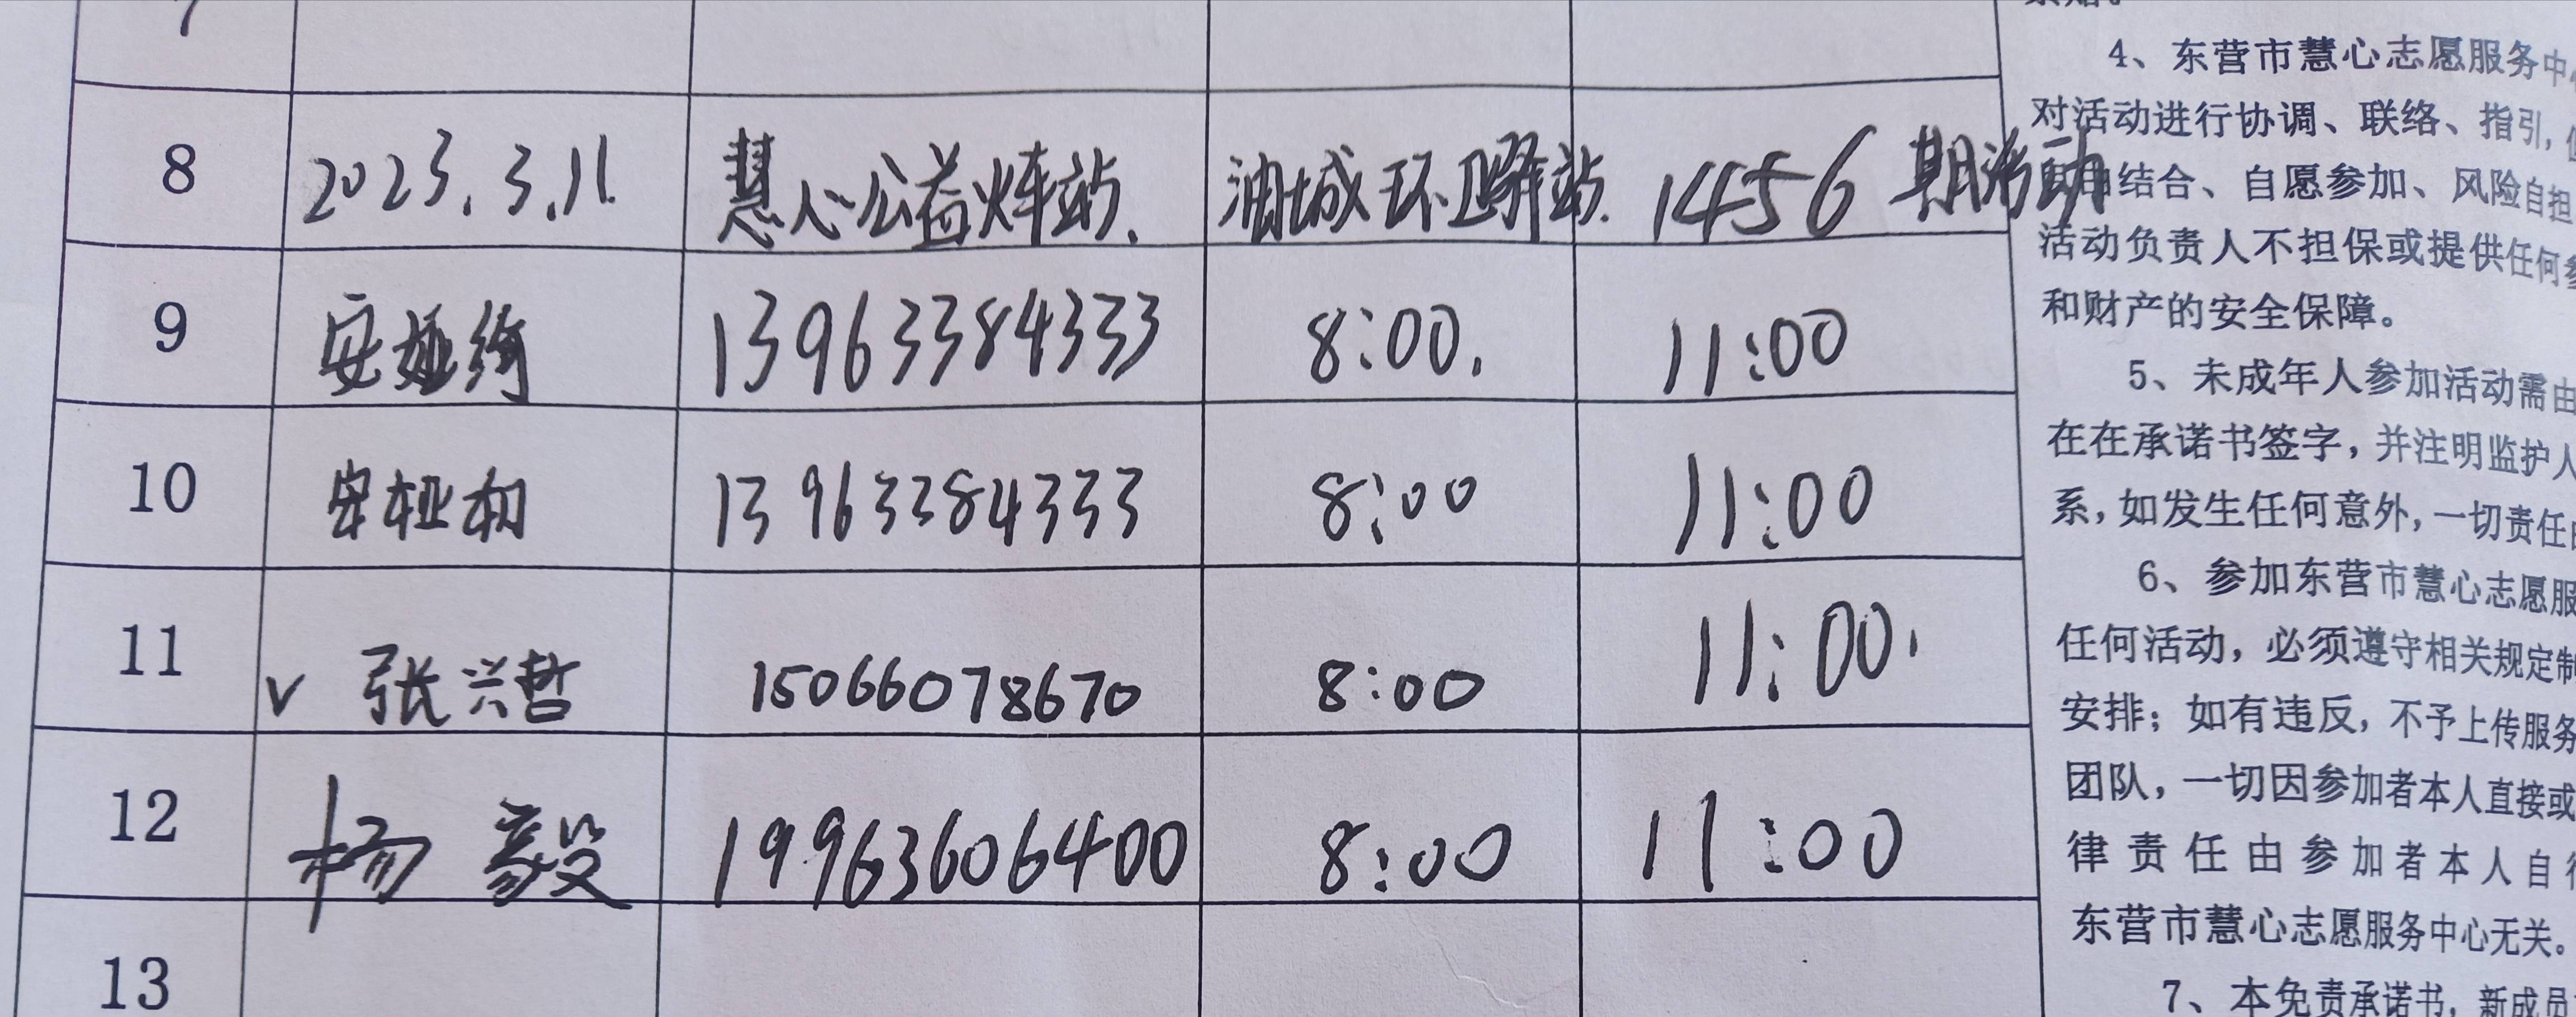 7
8 2023.3.11. 慧心公益烊站. 油城环卫驿站. 1456期活动
9 安娅绮 13963384333 8:00. 11:00
10 安桠初 13963384333 8:00 11:00
11 √ 张兴哲 15066078670 8:00 11:00.
12 杨毅 19963606400 8:00 11:00
13
4、东营市慧心志愿服务中
对活动进行协调、联络、指引,
结合、自愿参加、风险自担
活动负责人不担保或提供任何
和财产的安全保障。
5、未成年人参加活动需由
在在承诺书签字,并注明监护人
系,如发生任何意外,一切责任
6、参加东营市慧心志愿服
任何活动,必须遵守相关规定制
安排;如有违反,不予上传服务
团队,一切因参加者本人直接或
律责任由参加者本人自
东营市慧心志愿服务中心无关。
7、本免责承诺书,新成员